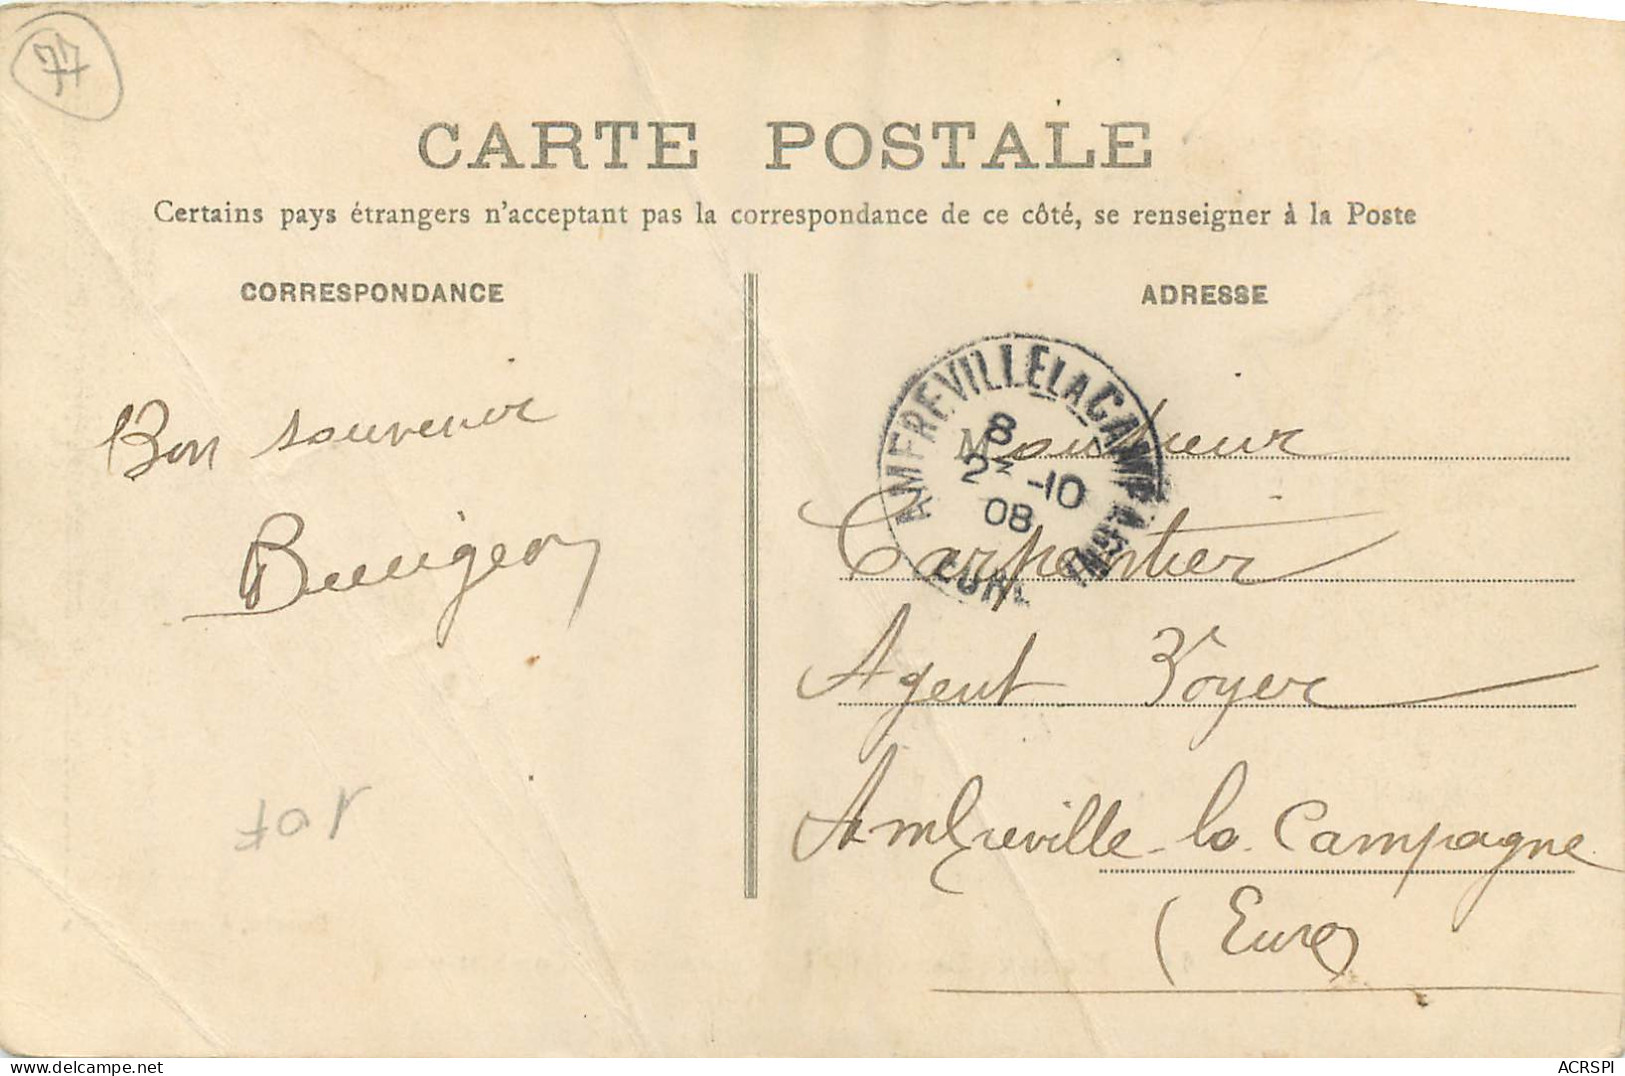 77
CARTE POSTALE
Certains pays étrangers n'acceptent pas la correspondance de ce côté, se renseigner à la Poste
CORRESPONDANCE
Bon souvenir
10F
ADRESSE
AMFREVILLE LA CAMPAGNE
8
-10
08
EURE
Monsieur
Carpentier
Agent Voyer
Amfreville-la-Campagne
(Eure)
ACRSPI